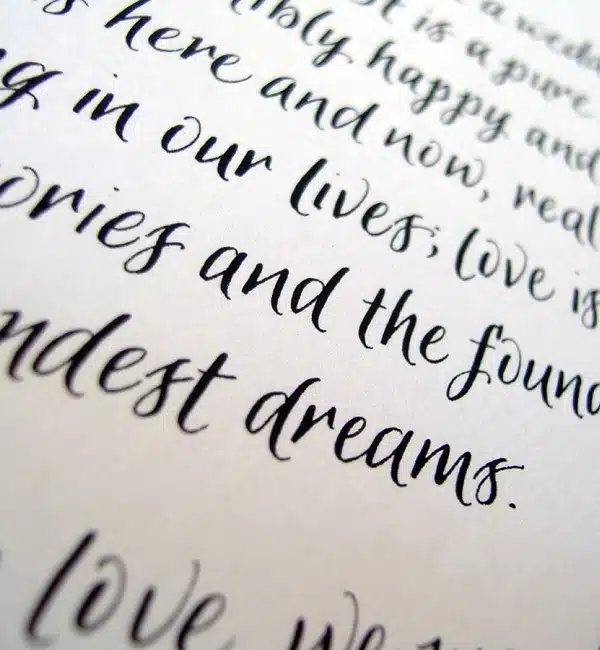 is a pure
happy and
here and now, real
in our lives; love is
ories and the found
ndest dreams.
love we